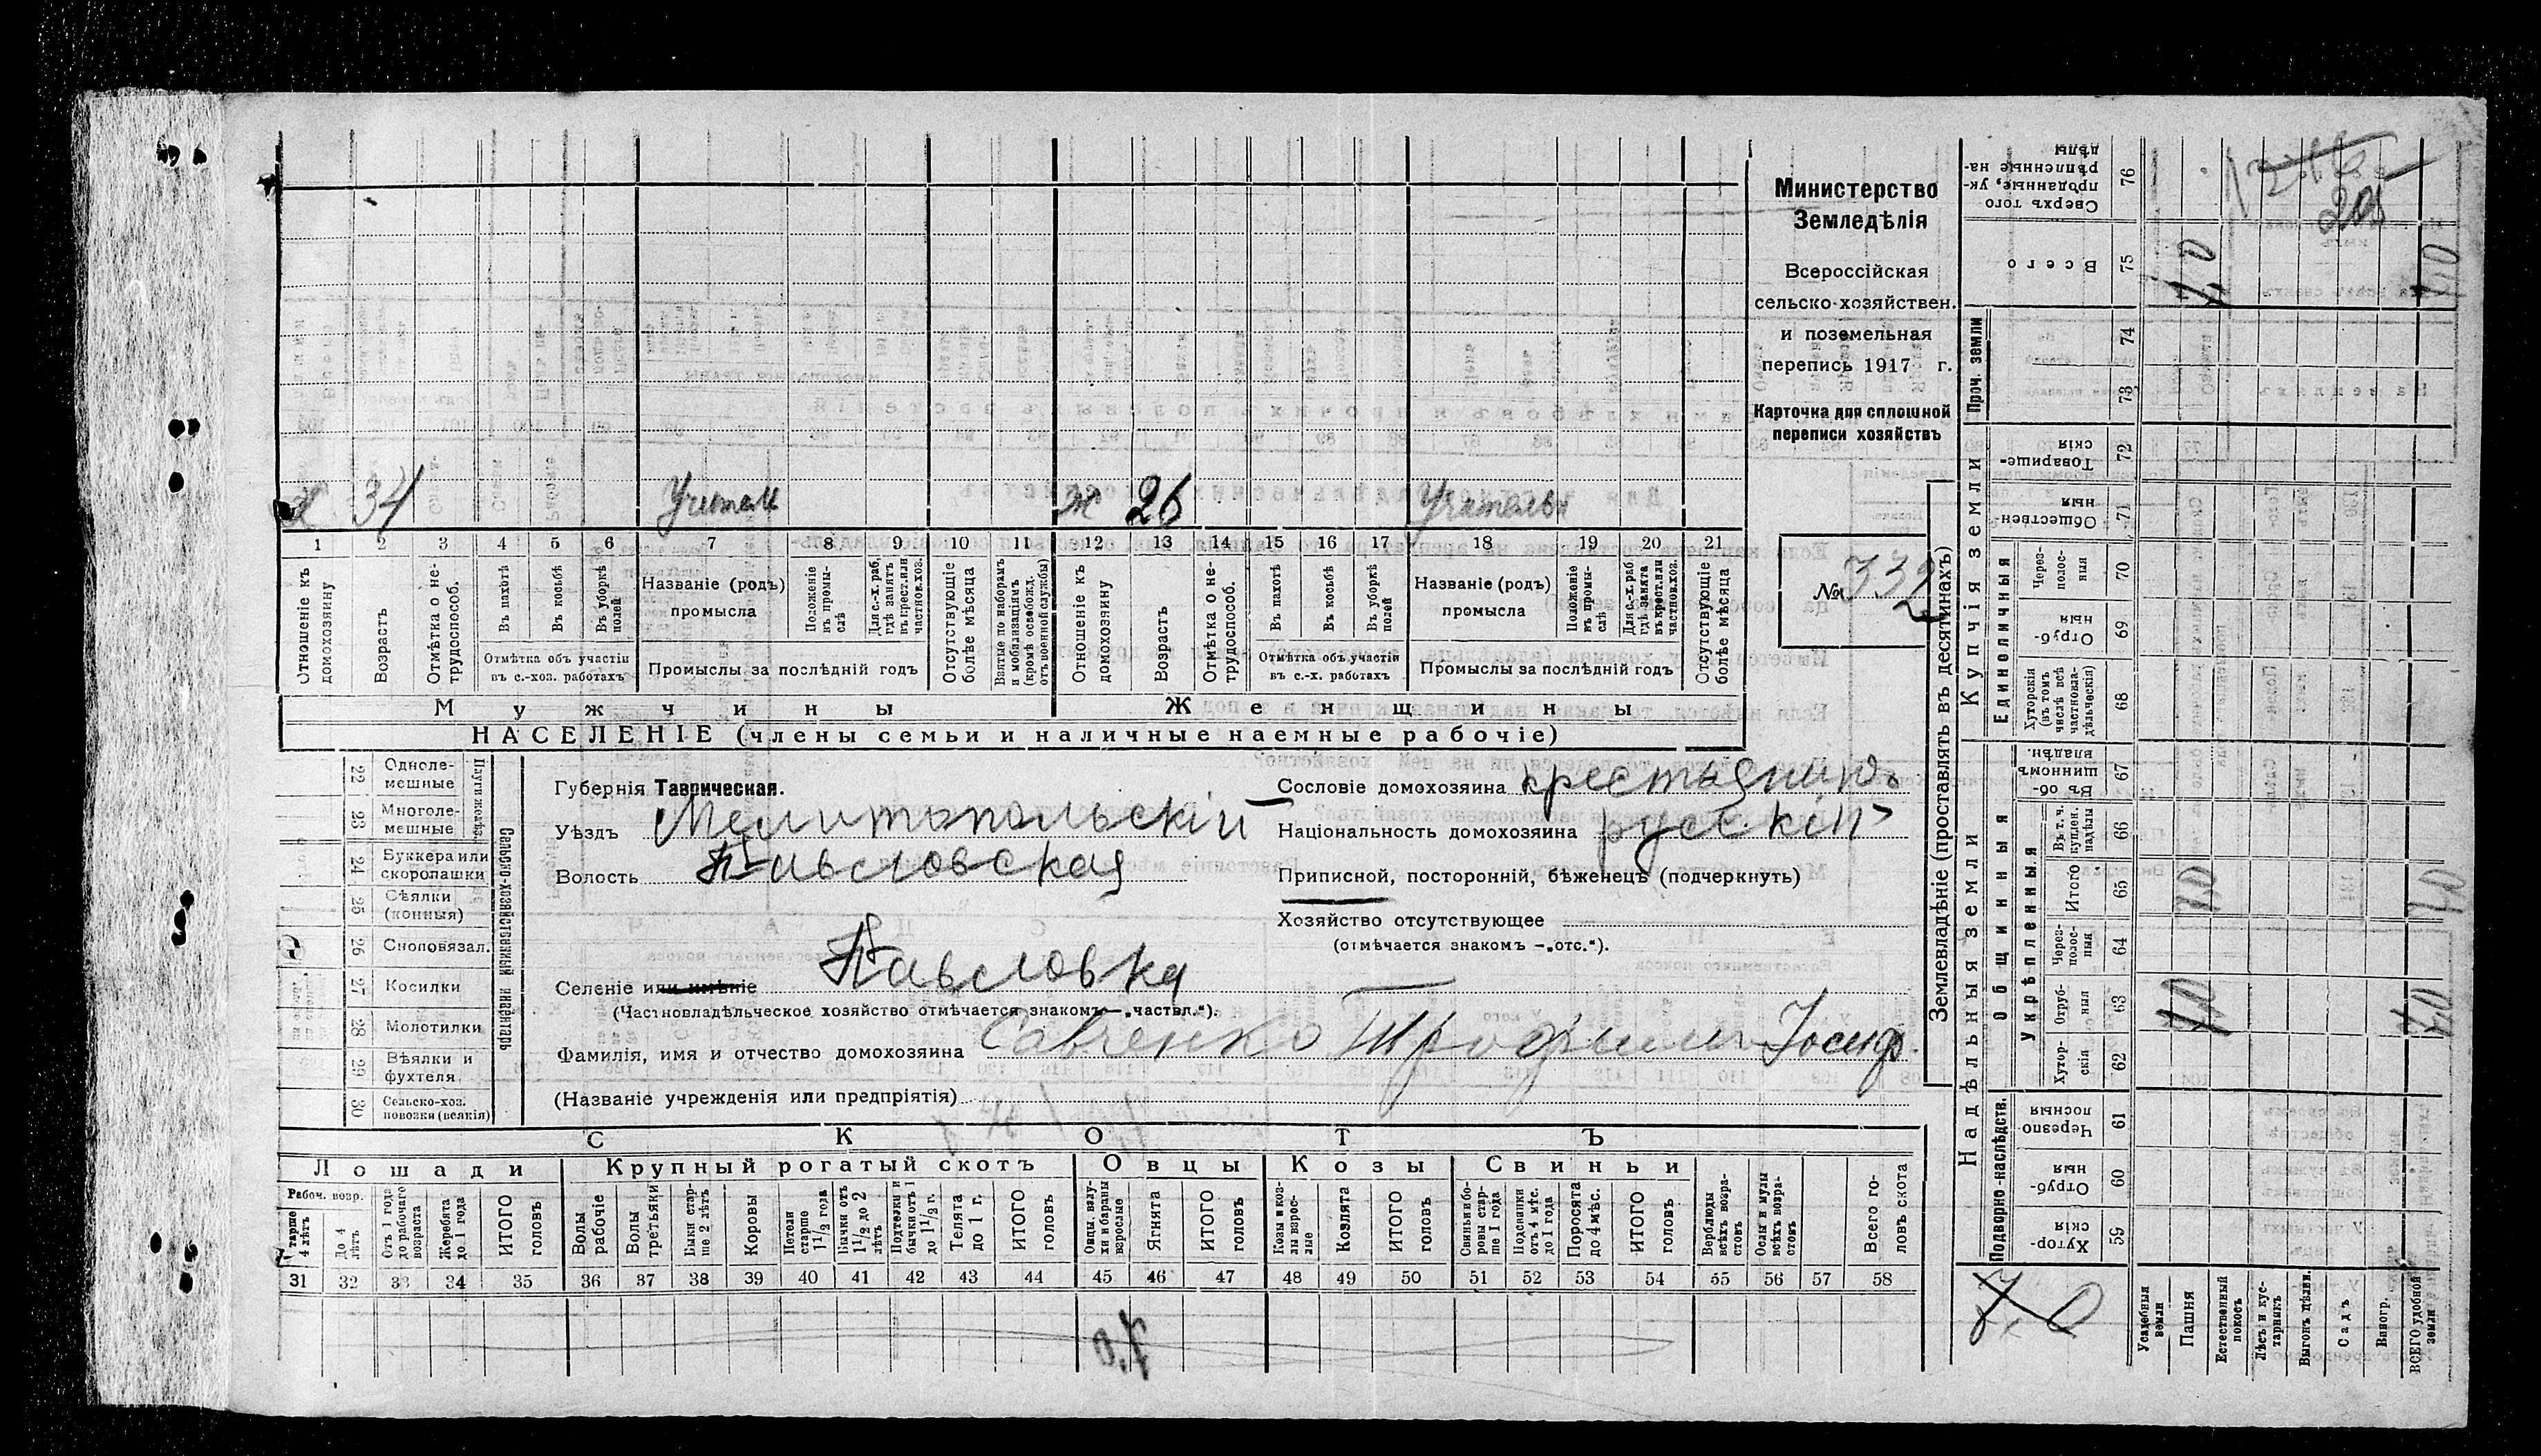 Министерство
Земледѣлія
Всероссійская
сельско-хозяйствен.
и поземельная
перепись 1917 г.
Карточка для сплошной
переписи хозяйствъ
№ 332
х. 34 Учитель ж 26 Учительн
1 2 3 4 5 6 7 8 9 10 11 12 13 14 15 16 17 18 19 20 21
Отношеніе къ домохозяину
Возрастъ
Отмѣтка о не-трудоспособ.
Въ пахотѣ
Въ косьбѣ
Въ уборкѣ полей
Отмѣтка объ участіи въ с.-хоз. работахъ
Названіе (родъ) промысла
Положеніе въ промы-слѣ
Для с.-х. раб. гдѣ занятъ въ крест. или частн. хоз.
Промыслы за послѣдній годъ
Отсутствующіе болѣе мѣсяца
Взятые по наборамъ и мобилизаціямъ (кромѣ освобожд. отъ военной службы)
Отношеніе къ домохозяину
Возрастъ
Отмѣтка о не-трудоспособ.
Въ пахотѣ
Въ косьбѣ
Въ уборкѣ полей
Отмѣтка объ участіи въ с.-х. работахъ
Названіе (родъ) промысла
Положеніе въ промы-слѣ
Для с.-х. раб. гдѣ занята въ крест. или частнов. хоз.
Промыслы за послѣдній годъ
Отсутствующіе болѣе мѣсяца
Мужчины Женщины
НАСЕЛЕНІЕ (члены семьи и наличные наемные рабочіе)
Сельско-хозяйственный инвентарь
22 Однолемешные
23 Многолемешные
24 Буккера или скоропашки
25 Сѣялки (конныя)
26 Сноповязал.
27 Косилки
28 Молотилки
29 Вѣялки и фухтеля
30 Сельско-хоз. повозки (всякія)
Губернія Таврическая.
Уѣздъ Мелитопольскій
Волость Павловская
Селеніе или имѣніе Павловка
(Частновладѣльческое хозяйство отмѣчается знакомъ—„частвл.“).
Фамилія, имя и отчество домохозяина Савченко Трофим Іосиф.
(Названіе учрежденія или предпріятія)
Сословіе домохозяина крестьянинъ
Національность домохозяина русскій
Приписной, посторонній, бѣженецъ (подчеркнуть)
Хозяйство отсутствующее
(отмѣчается знакомъ —„отс.“).
СКОТЪ
Лошади Крупный рогатый скотъ Овцы Козы Свиньи
Рабоч. возр.
Старше 4 лѣтъ
До 4 лѣтъ
Отъ 1 года до рабочаго возраста
Жеребята до 1 года
ИТОГО головъ
Волы рабочіе
Волы третьяки
Быки стар-ше 2 лѣтъ
Коровы
Нетели старше 1 1/2 года
Бычки отъ 1 1/2 до 2 лѣтъ
Подтелки и бычки отъ 1 до 1 1/2 г.
Телята до 1 г.
ИТОГО головъ
Овцы, валу-хи и бараны взрослые
Ягнята
ИТОГО головъ
Козы и коз-лы взрос-лые
Козлята
ИТОГО головъ
Свиньи и бо-ровы стар-ше 1 года
Подсвинки отъ 4 мѣс. до 1 года
Поросята до 4 мѣс.
ИТОГО головъ
Верблюды всѣхъ возра-стовъ
Ослы и мулы всѣхъ возра-стовъ
Всего го-ловъ скота
31 32 33 34 35 36 37 38 39 40 41 42 43 44 45 46 47 48 49 50 51 52 53 54 55 56 57 58
Землевладѣніе (проставлять въ десятинахъ)
Надѣльныя земли Купчія земли Проч. земли
Подворно-наслѣдств. Общинныя
Укрѣпленныя Единоличныя
59 Хутор-скія
60 Отруб-ныя
61 Черезпо лосныя
62 Хутор-скія
63 Отруб-ныя
64 Через-полос-ныя
65 Итого
66 Въ т. ч. куплен. надѣлы
67 Въ об-щинномъ владѣн.
68 Хуторскія (въ томъ числѣ всѣ частновла-дѣльческія)
69 Отруб-ныя
70 Через-полос-ныя
71 Обществен-ныя
72 Товарище-скія
73
74
75 Всего
76 Сверхъ того проданные, ук-рѣпленные на-дѣлы
205
Усадебныя земли
Пашня
Естественный покосъ
Лѣсъ и кус-тарникъ
Выгонъ цѣлин.
Садъ
Виногр.
ВСЕГО удобной земли